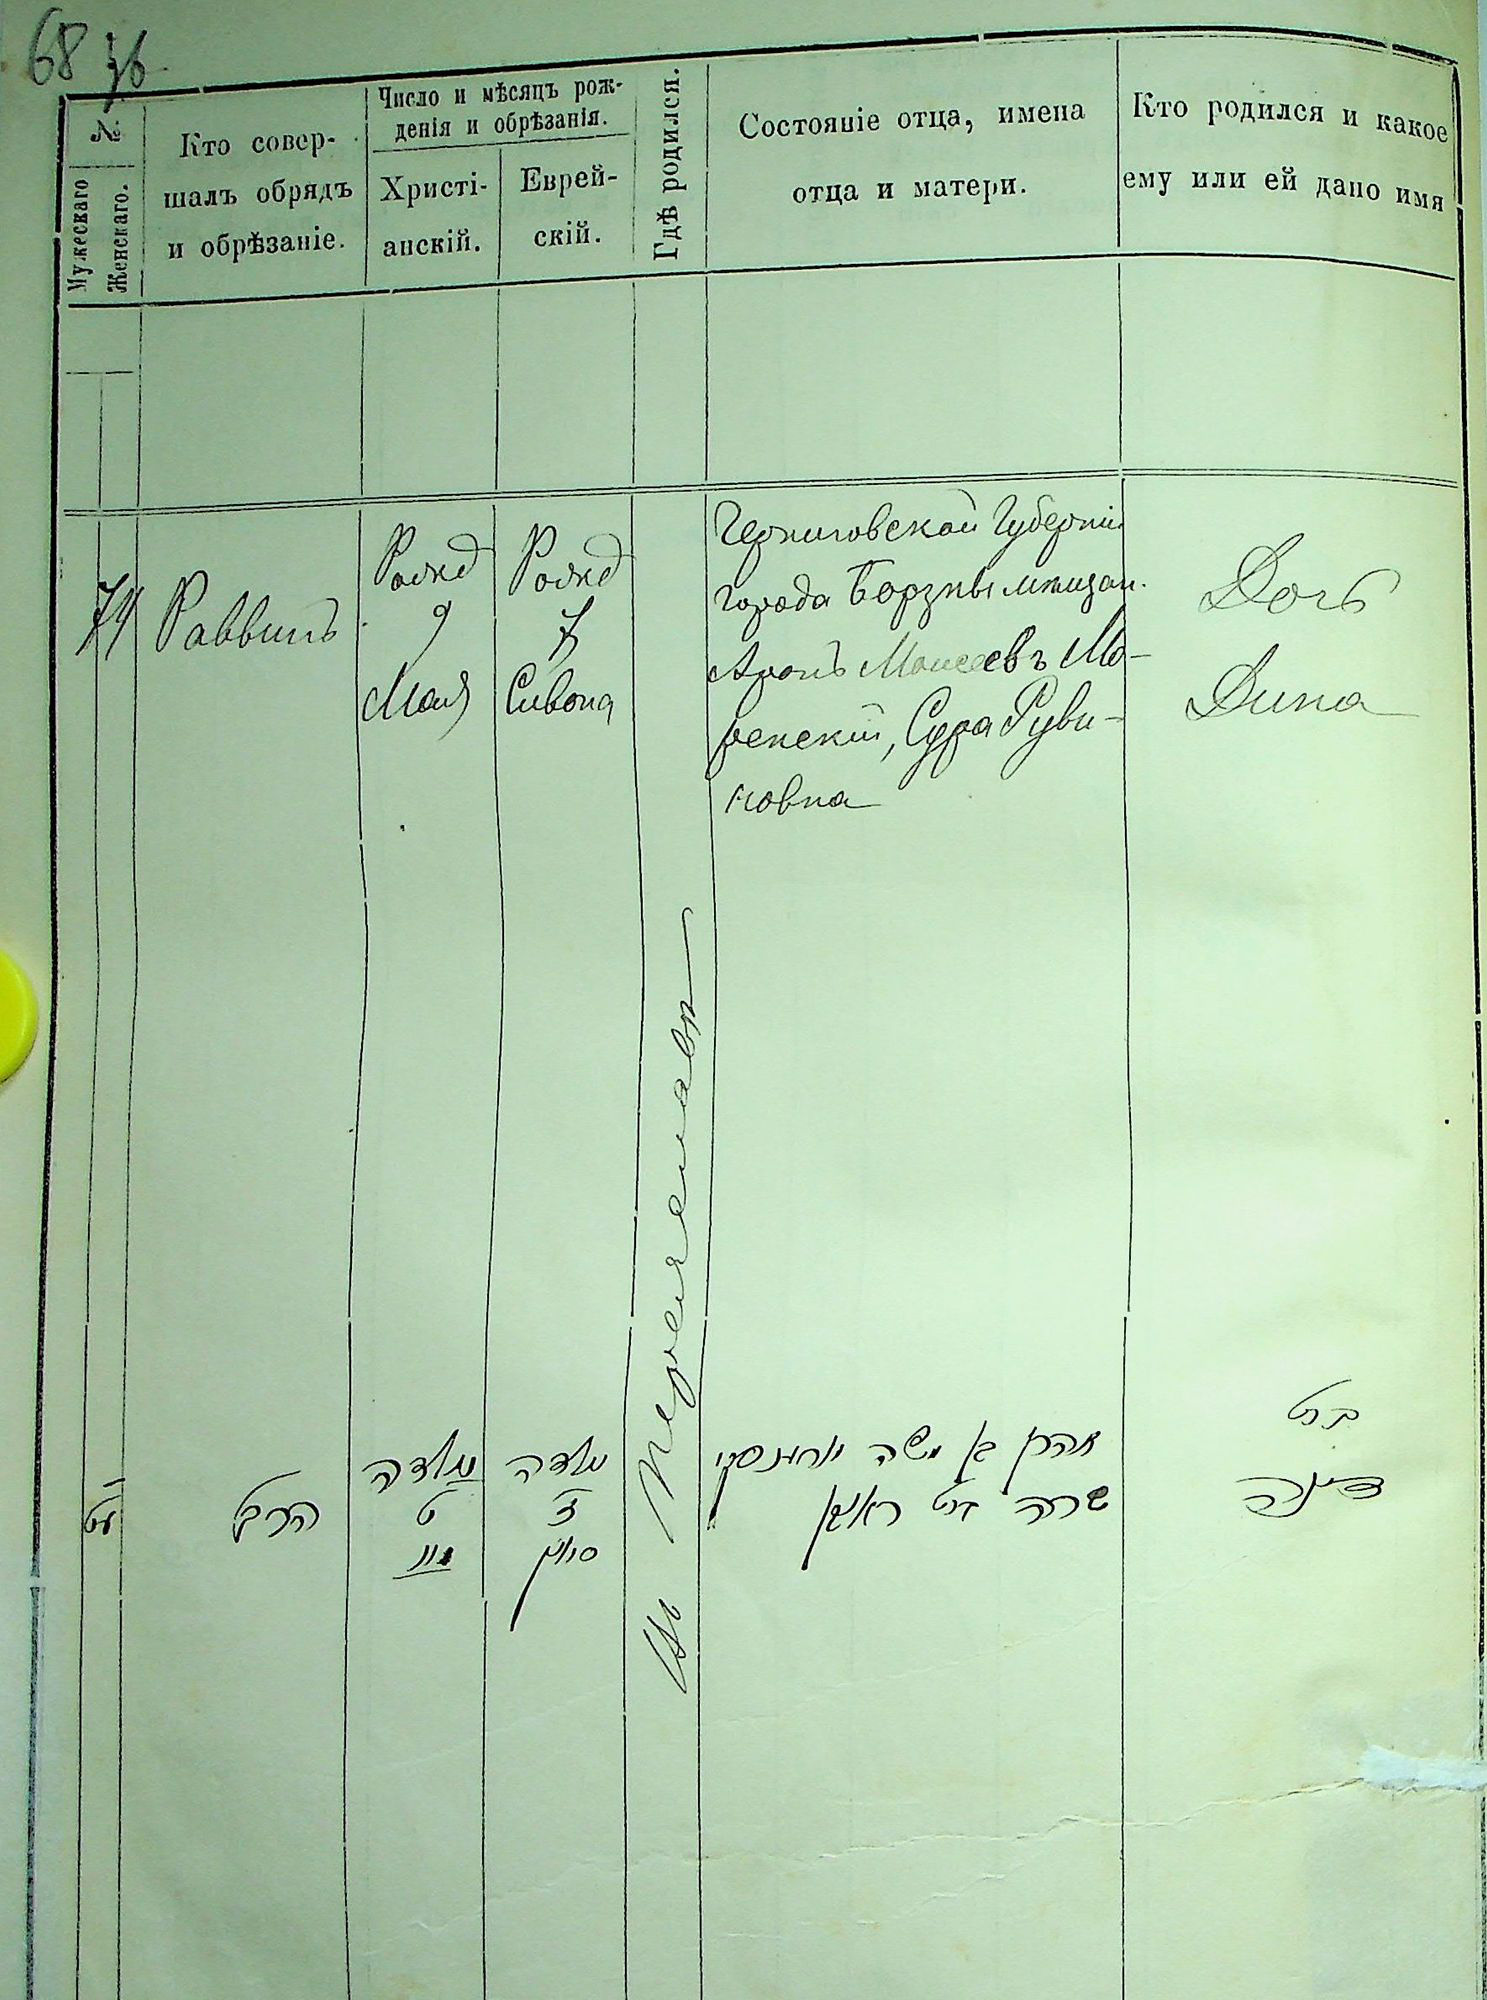 68 76
№.
Мужескаго
Женскаго.
Кто совер-
шалъ обрядъ
и обрѣзаніе.
Число и мѣсяцъ рож-
денія и обрѣзанія.
Христі-
анскій.
Еврей-
скій.
Гдѣ родился.
Состояніе отца, имена
отца и матери.
Кто родился и какое
ему или ей дано имя
74
Раввинъ
Рожд
9
Мая
Рожд
7
Сивона
въ Переяславѣ
Черниговской Губерніи
города Борзны мѣщан.
Аронъ Моисеевъ Мо-
ренскій, Сура Руви-
новна
Дочь
Дина
הרב
נולדה
ט
מיי
נולדה
ז
סיון
אהרן ב משה מארענסקי
שרה בת ראובן
בת
דינה